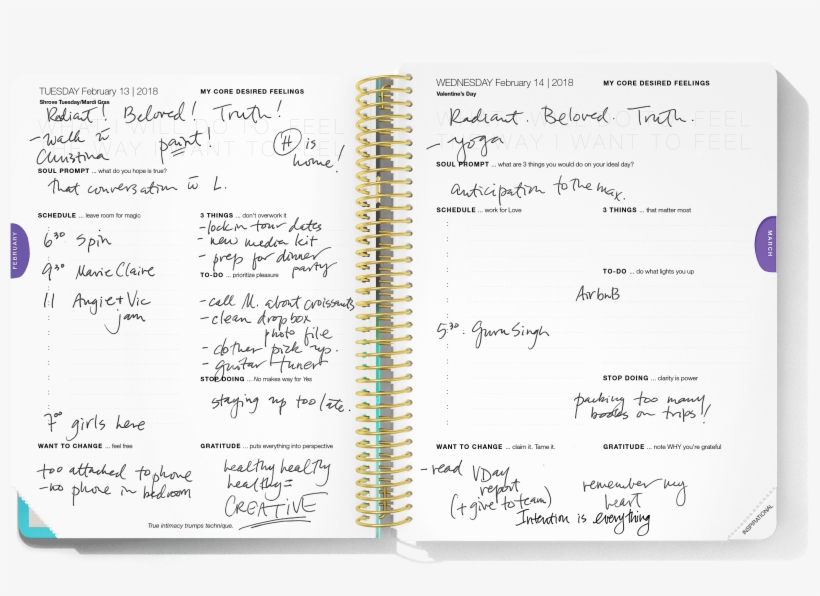 TUESDAY February 13 | 2018
MY CORE DESIRED FEELINGS
Shrove Tuesday/Mardi Gras
Radiant! Beloved! Truth!
WHAT I WILL DO TO FEEL
THE WAY I WANT TO FEEL
- walk w
Christina
paint!
H is
home!
SOUL PROMPT ... what do you hope is true?
that conversation w L.
SCHEDULE ... leave room for magic
6:30 Spin
9:30 Marie Claire
11 Angie + Vic
jam
7:00 girls here
3 THINGS ... don't overwork it
- lock in tour dates
- new media kit
- prep for dinner
party
TO-DO ... prioritize pleasure
- call M. about croissants
- clean dropbox
photo file
- clother pick up.
- guitar tuner
STOP DOING ... No makes way for Yes
staying up too late.
WANT TO CHANGE ... feel free
too attached to phone
- no phone in bedroom
GRATITUDE ... puts everything into perspective
healthy healthy
healthy =
CREATIVE
True intimacy trumps technique.
FEBRUARY
WEDNESDAY February 14 | 2018
MY CORE DESIRED FEELINGS
Valentine's Day
Radiant. Beloved. Truth.
WHAT I WILL DO TO FEEL
THE WAY I WANT TO FEEL
- yoga
SOUL PROMPT ... what are 3 things you would do on your ideal day?
anticipation to the max.
SCHEDULE ... work for Love
5:30. Guru Singh
3 THINGS ... that matter most
TO-DO ... do what lights you up
AirbnB
STOP DOING ... clarity is power
packing too many
books on trips!!
WANT TO CHANGE ... claim it. Tame it.
- read VDay
report
(+ give to team)
GRATITUDE ... note WHY you're grateful
remember my
heart
Intention is everything
MARCH
INSPIRATIONAL